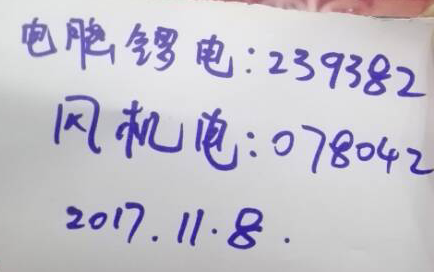 电脑锣电:239382
风机电:078042
2017.11.8.